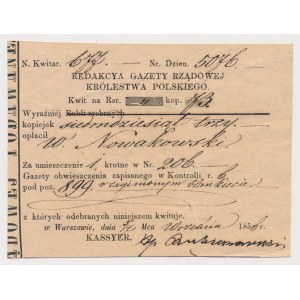 N. Kwitar. 677. Nr. Dzien. 5076.
REDAKCYA GAZETY RZĄDOWEJ
KRÓLESTWA POLSKIEGO.
Kwit na Rsr. " kop. 73
Wyraźniej Rubli srebrnych
kopiejek siedmdziesiąt trzy
opłacił
W. Nowakowski
Za umieszczenie 1. krotne w Nr. 206.
Gazety obwieszczenia zapisanego w Kontrolli r. b.
pod poz. 899 o zaginionym
z których odebranych niniejszem kwituje.
w Warszawie, dnia Mca Września 185
KASSYER.